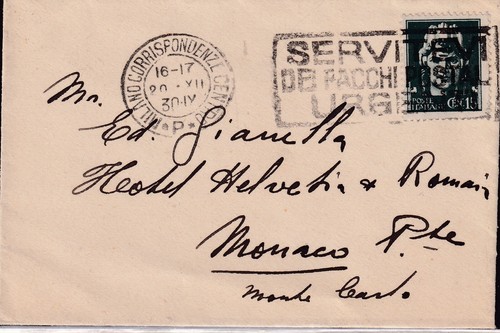 MILANO CORRISPONDENZE CENTRO
16-17
XII
30·IX
*P*
SERVITEVI
DEI PACCHI POSTALI
URGENTI
POSTE
ITALIANE
CENT. 15
Mr.
Ed. Gianella
Hotel Helvetia & Romain
Monaco Pte
Monte Carlo